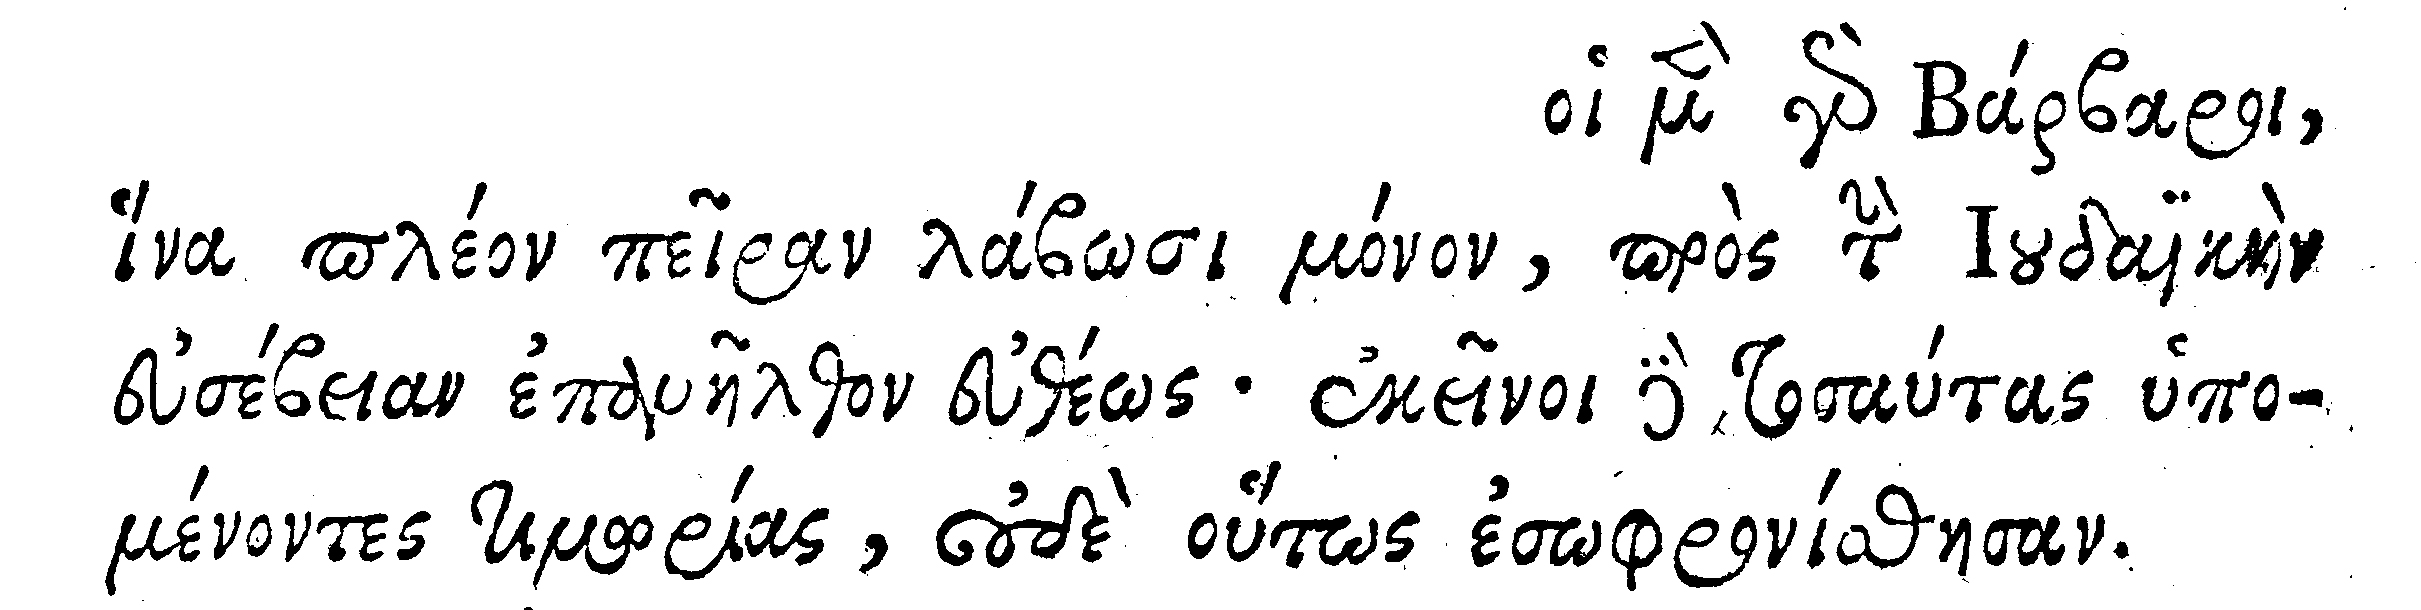 οἱ μὲν γὰρ Βάρβαροι,
ἵνα πλέον πεῖραν λάβωσι μόνον, πρὸς τὴν Ἰουδαϊκὴν
εὐσέβειαν ἐπανῆλθον εὐθέως· ἐκεῖνοι δὲ τοσαύτας ὑπο-
μένοντες τιμωρίας, οὐδὲ οὕτως ἐσωφρονίσθησαν.